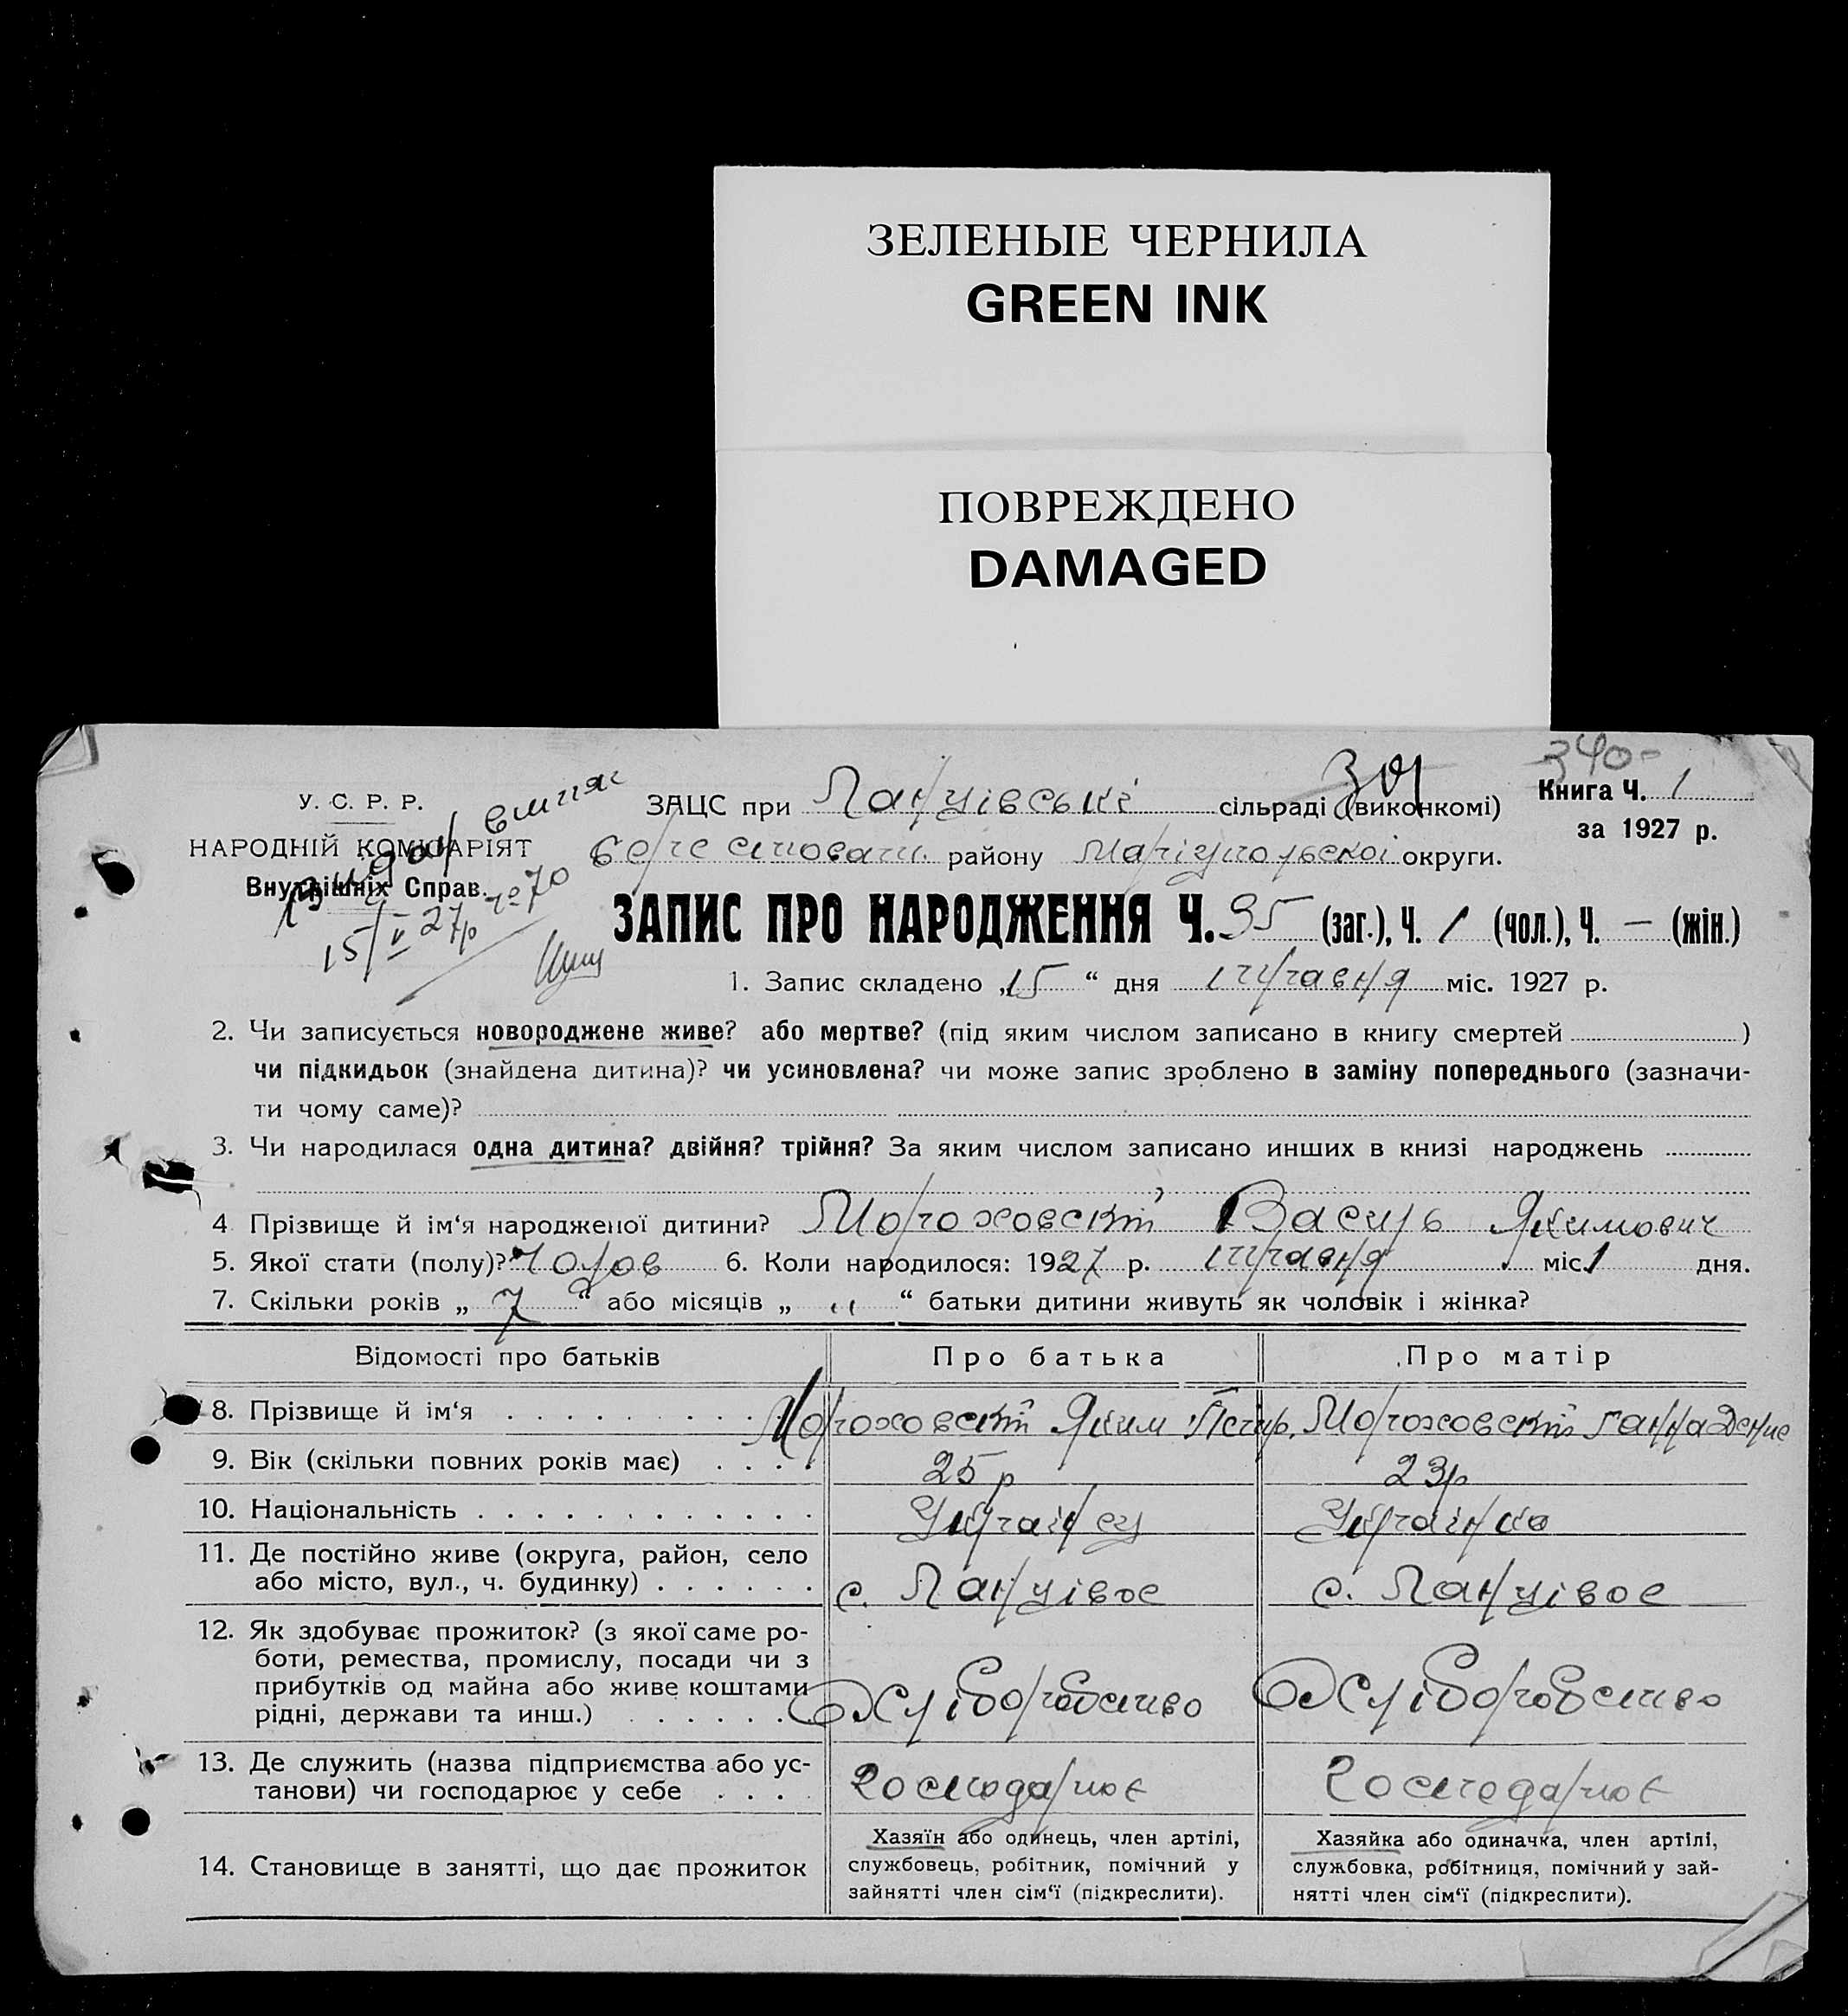 ЗЕЛЕНЫЕ ЧЕРНИЛА
GREEN INK
ПОВРЕЖДЕНО
DAMAGED
340-
У. С. Р. Р.
НАРОДНІЙ КОМІСАРІЯТ
Внутрішніх Справ.
15/V 27р № 70
ЗАЦС при Ланцівські сільраді (виконкомі)
Книга Ч. 1
за 1927 р.
району Маріупольскоі округи.
ЗАПИС ПРО НАРОДЖЕННЯ Ч. 95 (заг.), Ч. 1 (чол.), Ч. — (жін.)
1. Запис складено „15“ дня травня міс. 1927 р.
2. Чи записується новороджене живе? або мертве? (під яким числом записано в книгу смертей )
чи підкидьок (знайдена дитина)? чи усиновлена? чи може запис зроблено в заміну попереднього (зазначи-
ти чому саме)?
3. Чи народилася одна дитина? двійня? трійня? За яким числом записано инших в книзі народжень
4 Прізвище й ім‘я народженої дитини? Мороховский Василь Якимович
5. Якої стати (полу)? чолов 6. Коли народилося: 1927 р. травня міс. 1 дня.
7. Скільки років „ 7 “ або місяців „ “ батьки дитини живуть як чоловік і жінка?
Відомості про батьків Про батька Про матір
8. Прізвище й ім‘я Мороховский Яким Петр. Мороховский Ганна Дение
9. Вік (скільки повних років має) 25 р 23р
10. Національність Украінец Украінка
11. Де постійно живе (округа, район, село
або місто, вул., ч. будинку) с. Ланцівое с. Ланцівое
12. Як здобуває прожиток? (з якої саме ро-
боти, ремества, промислу, посади чи з
прибутків од майна або живе коштами
рідні, держави та инш.) Хліборобство Хліборобство
13. Де служить (назва підприємства або ус-
танови) чи господарює у себе господарює господарює
14. Становище в занятті, що дає прожиток
Хазяїн або одинець, член артілі,
службовець, робітник, помічний у
зайнятті член сім‘ї (підкреслити).
Хазяйка або одиначка, член артілі,
службовка, робітниця, помічний у зай-
нятті член сім‘ї (підкреслити).